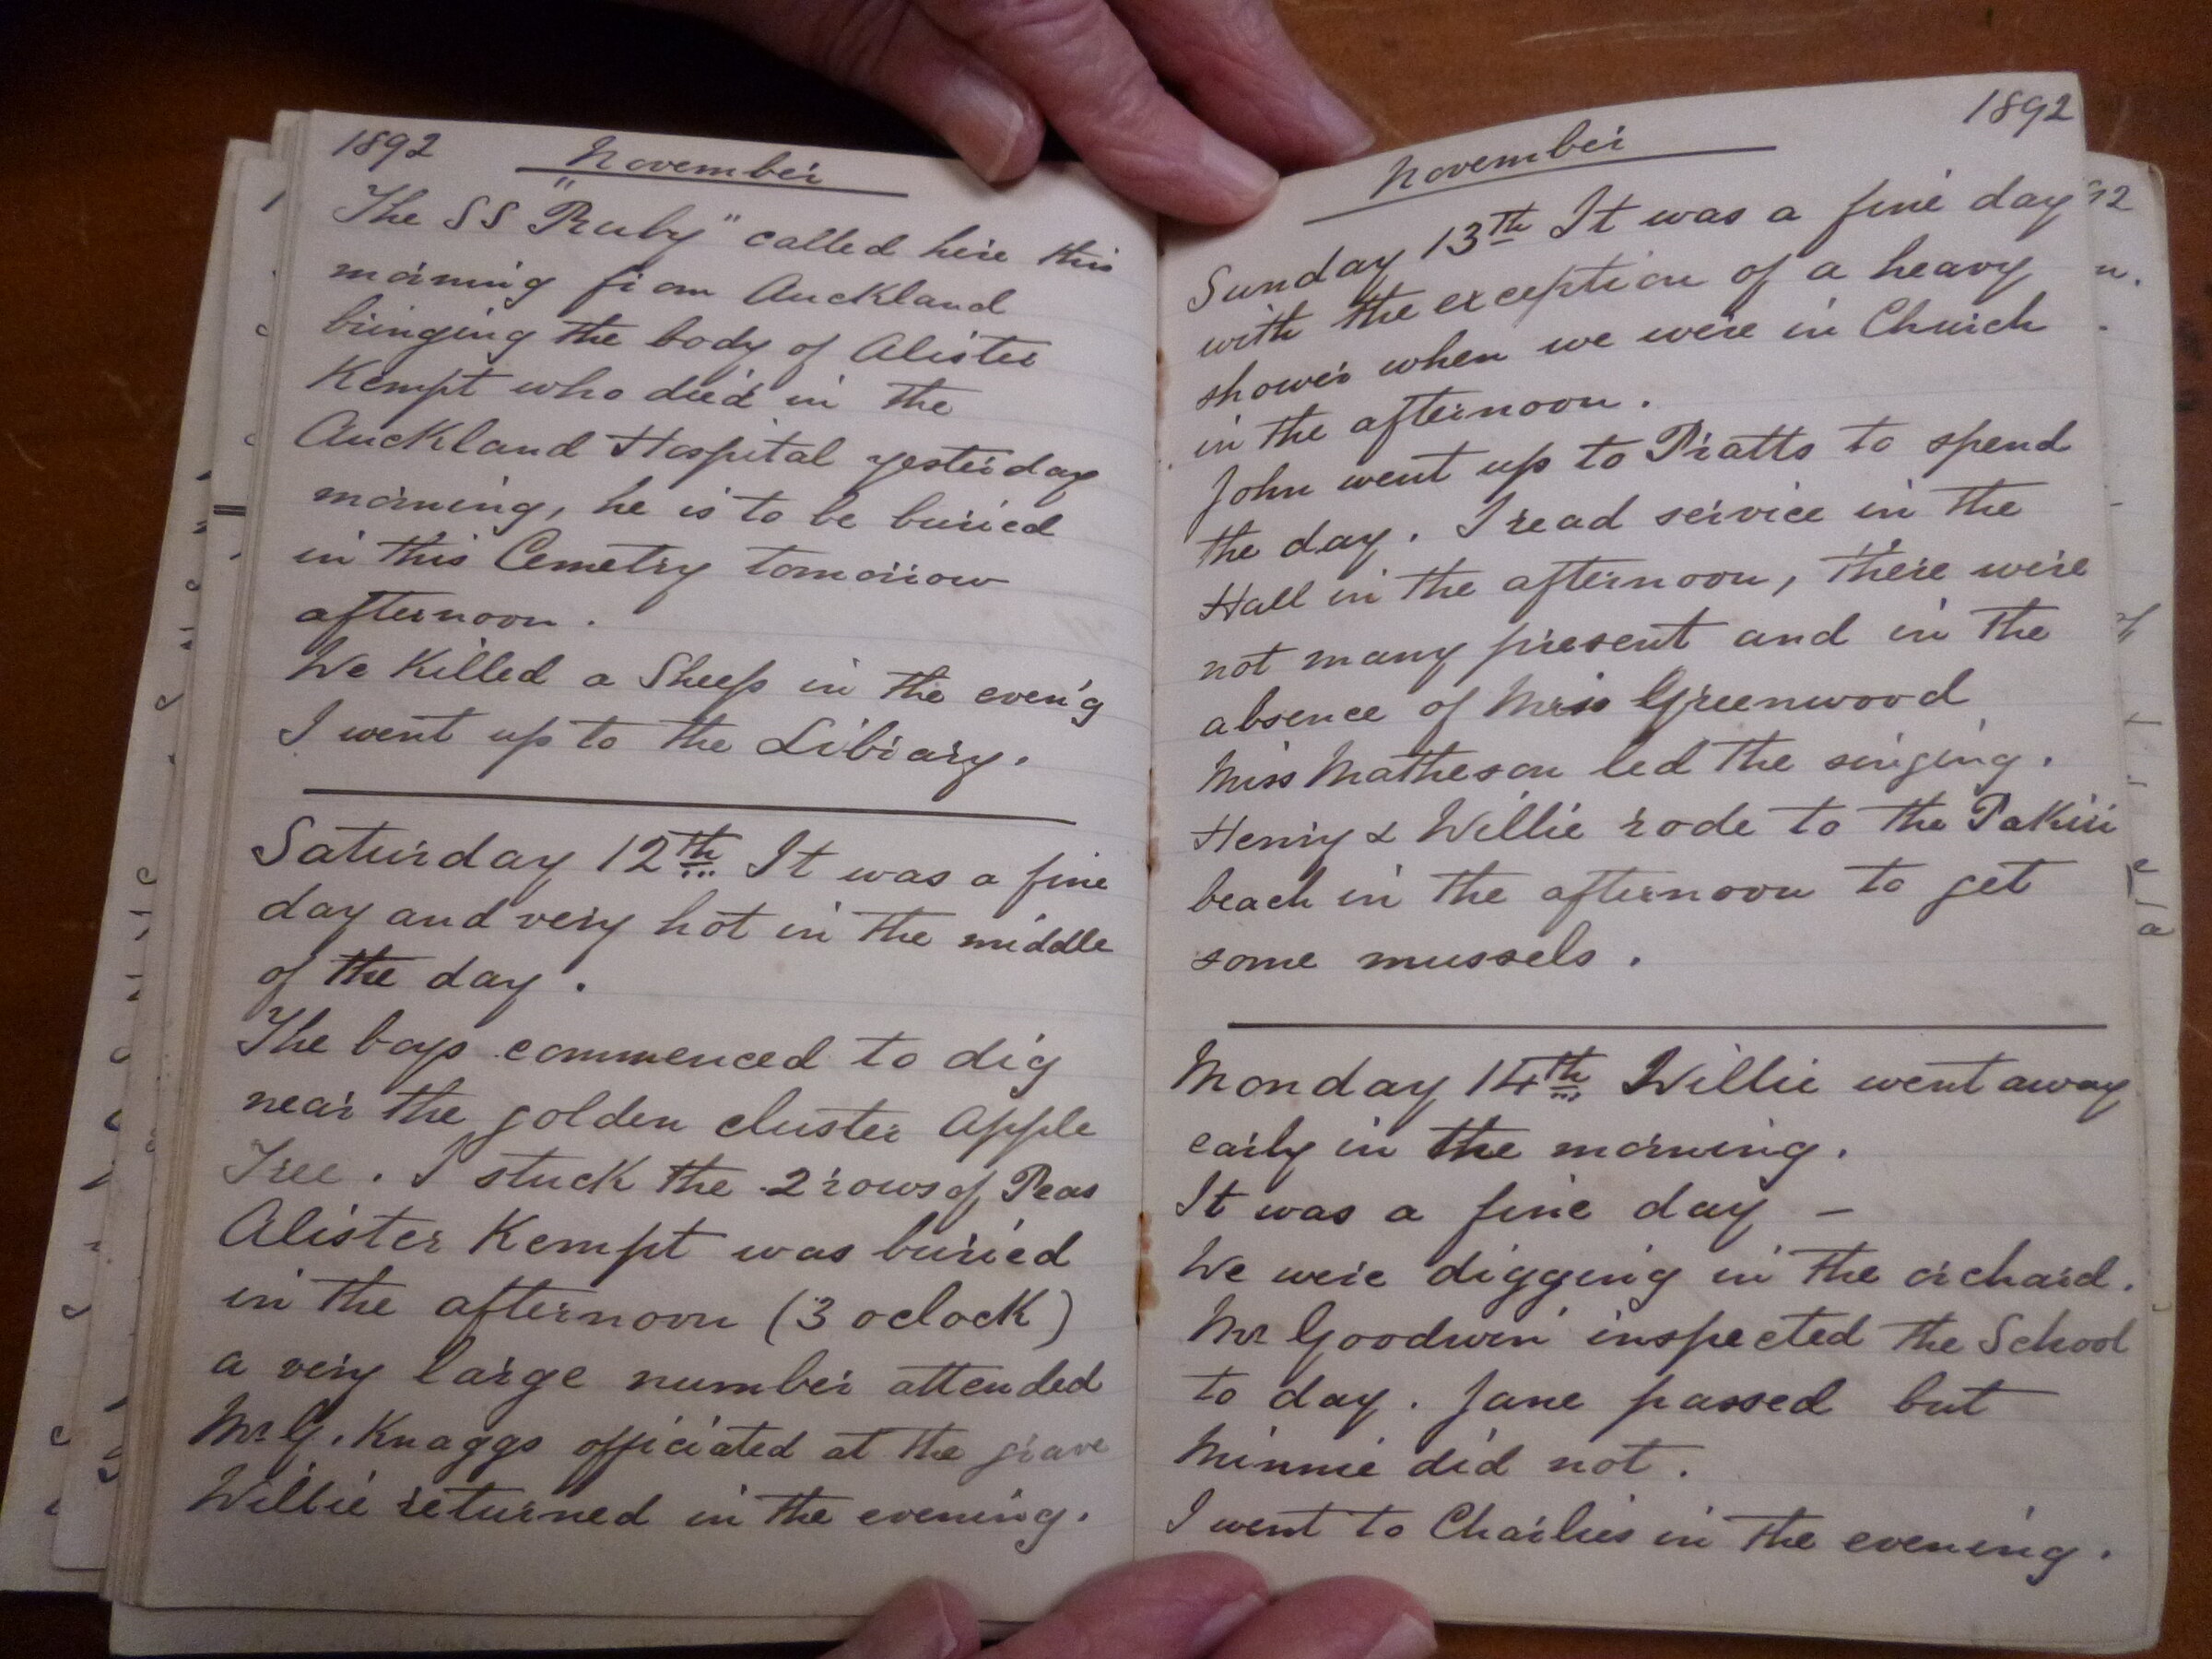 1892 November
The SS "Ruby" called here this
morning from Auckland
bringing the body of Alister
Kempt who died in the
Auckland Hospital yesterday
morning, he is to be buried
in this Cemetry tomorrow
afternoon.
We killed a Sheep in the even'g
I went up to the Library.
Saturday 12th It was a fine
day and very hot in the middle
of the day.
The boys commenced to dig
near the golden cluster Apple
Tree. I stuck the 2 rows of Peas
Alister Kempt was buried
in the afternoon (3 oclock)
a very large number attended
Mr G. Knaggs officiated at the grave
Willie returned in the evening.
November 1892
Sunday 13th It was a fine day
with the exception of a heavy
shower when we were in Church
in the afternoon.
John went up to Pratts to spend
the day. I read service in the
Hall in the afternoon, there were
not many present and in the
absence of Miss Greenwood
Miss Matheson led the singing.
Henry & Willie rode to the Pakiri
beach in the afternoon to get
some mussels.
Monday 14th Willie went away
early in the morning.
It was a fine day –
We were digging in the orchard.
Mr Goodwin inspected the School
to day. Jane passed but
Minnie did not.
I went to Charlies in the evening.